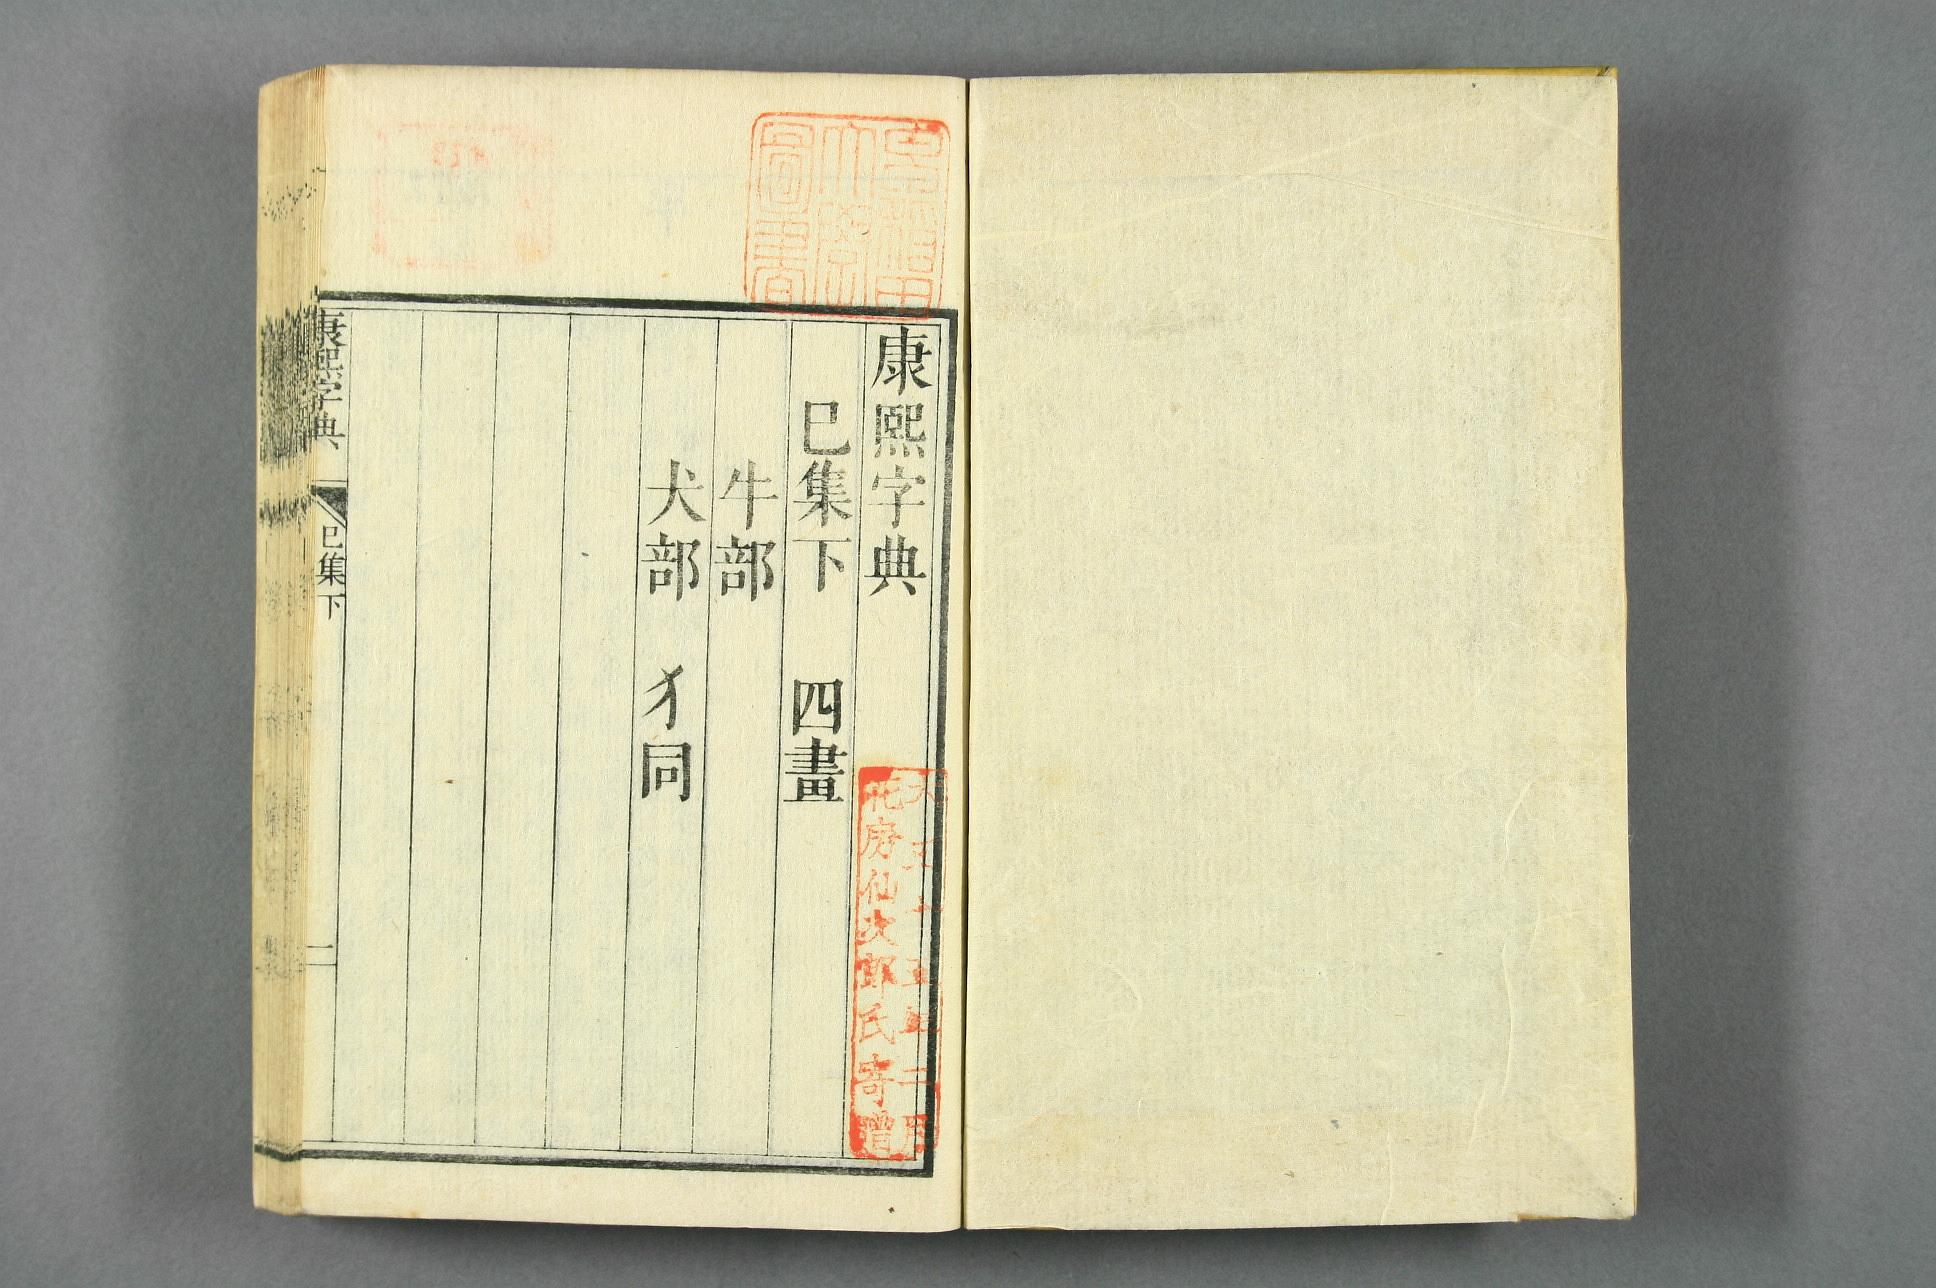 康熙字典
巳集下 四畫
牛部
犬部 犭同
康熙字典
巳集下
一
早稻田
大學
圖書
花房仙次郎氏寄贈